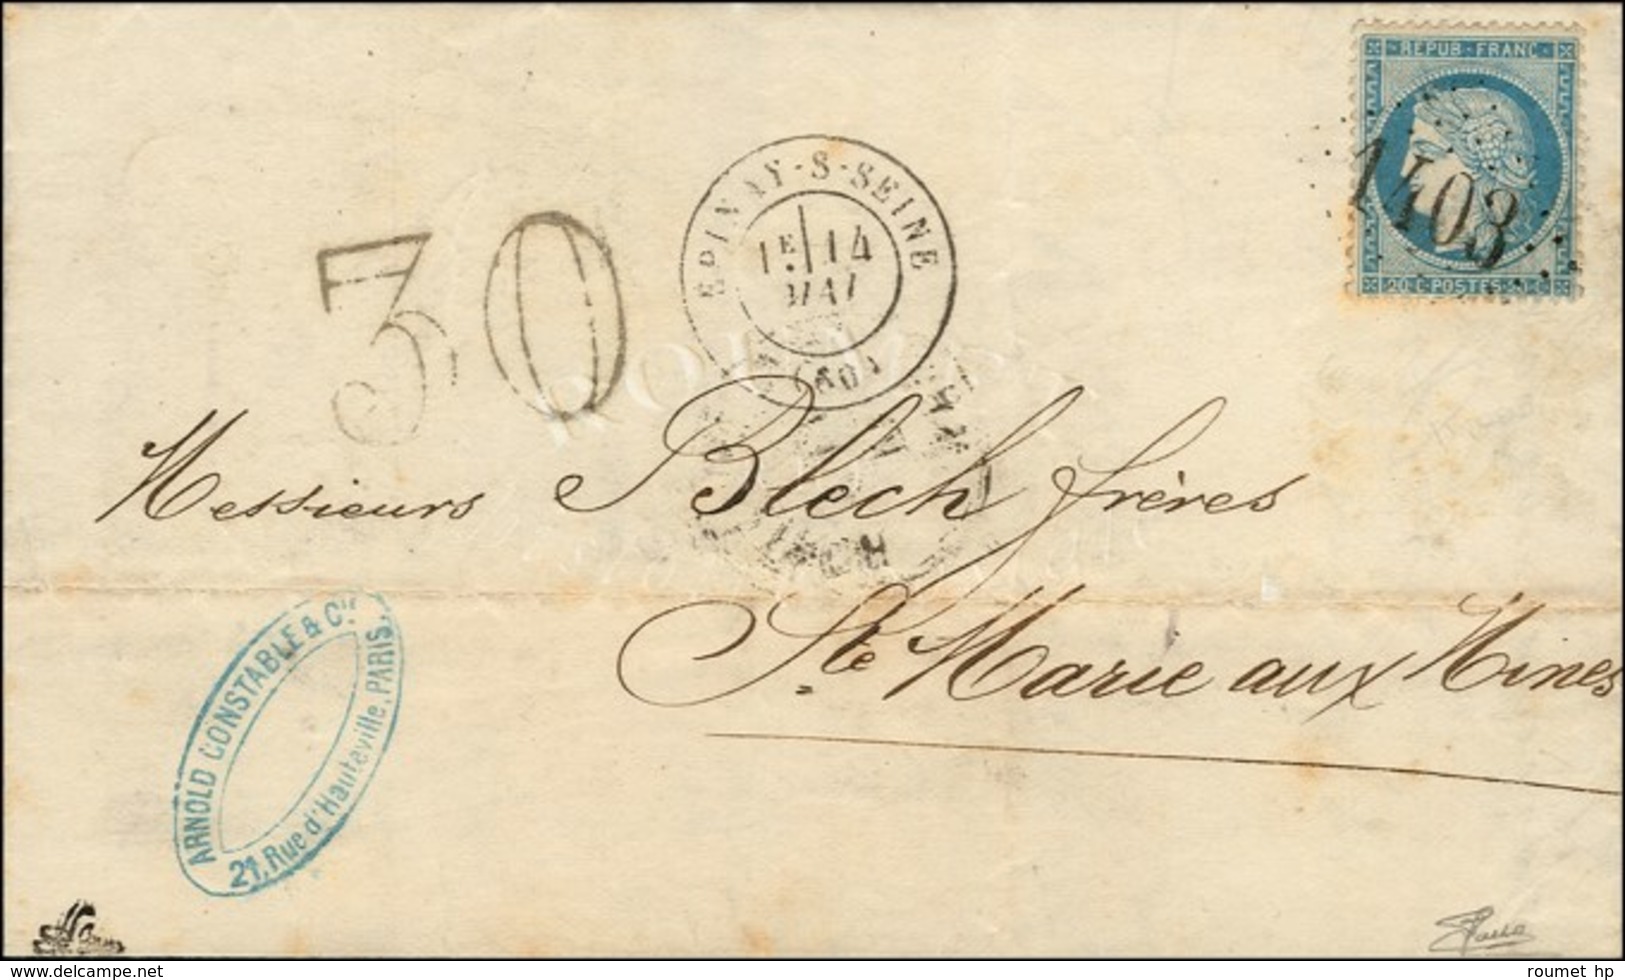 REPUB · FRANC
1403
20 C · POSTES · 20 C
30
EPINAY-S-SEINE
1E 14
MAI
(60)
Messieurs Blech frères
Ste Marie aux Mines
ARNOLD CONSTABLE & Cie
21, Rue d'Hauteville, PARIS.
roumet hp